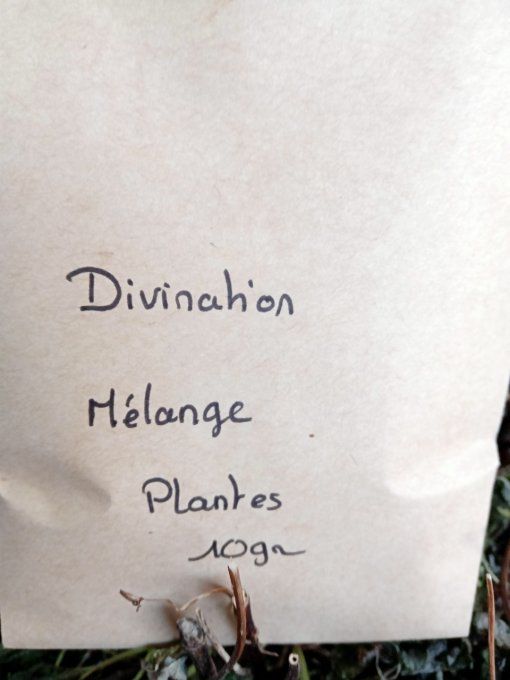 Divination
Mélange
Plantes
10gr